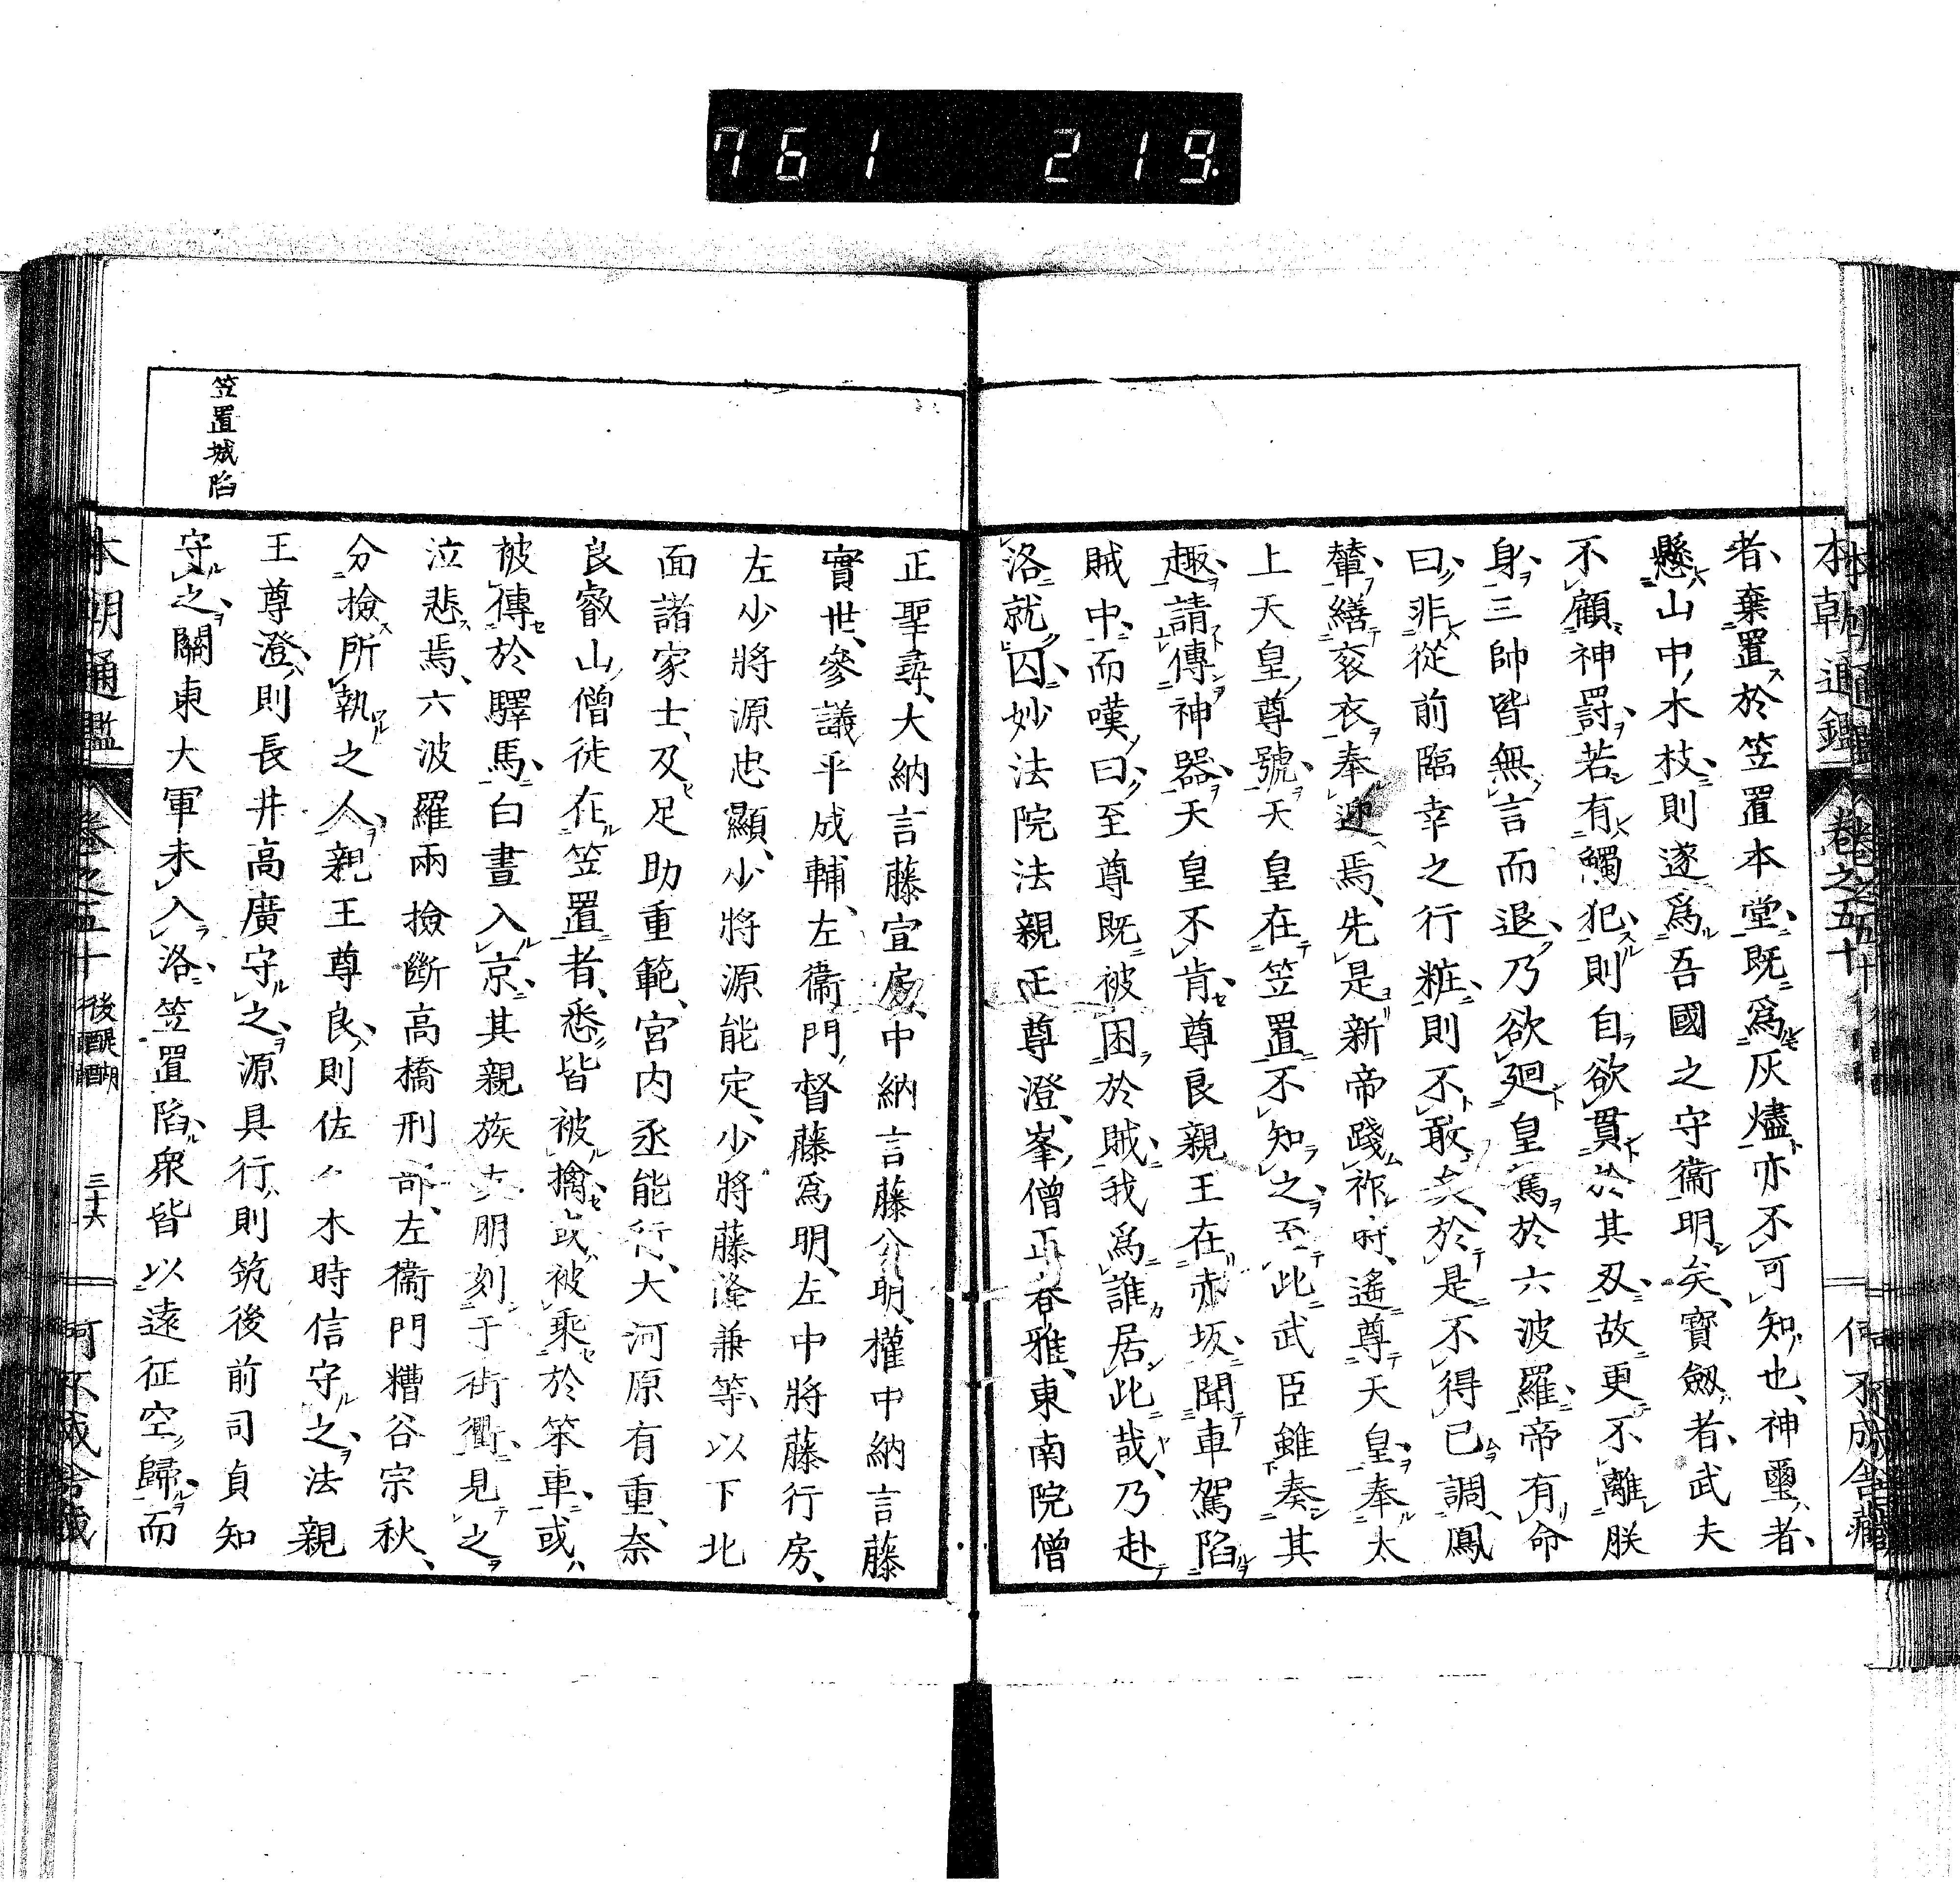 761 219
本朝通鑑 卷之五十 何不成舍藏
者棄置於笠置本堂既爲灰燼亦不可知也神璽者
懸山中木枝則遂爲吾國之守衞明矣寶劔者武夫
不顧神罸若有觸犯則自欲貫於其刄故更不離朕
身三帥皆無言而退乃欲廻皇駕於六波羅帝有命
曰非從前臨幸之行粧則不敢矣於是不得已調鳳
輦繕衮衣奉迎焉先是新帝踐祚時遙尊天皇奉太
上天皇尊號天皇在笠置不知之至此武臣雖奏其
趣請傳神器天皇不肯尊良親王在赤坂聞車駕陷
賊中而嘆曰至尊既被困於賊我爲誰居此哉乃赴
洛就囚妙法院法親王尊澄峯僧正春雅東南院僧
正聖尋大納言藤宣房中納言藤公明權中納言藤
實世參議平成輔左衞門督藤爲明左中將藤行房
左少將源忠顯少將源能定少將藤隆兼等以下北
面諸家士及足助重範宮内丞能行大河原有重奈
良叡山僧徒在笠置者悉皆被擒或被乘於笨車或
被傳於驛馬白晝入京其親族立朋刻于街衢見之
泣悲焉六波羅兩撿斷高橋刑部左衞門糟谷宗秋
分撿所執之人親王尊良則佐々木時信守之法親
王尊澄則長井高廣守之源具行則筑後前司貞知
守之關東大軍未入洛笠置陷衆皆以遠征空歸而
笠置城陷
本朝通鑑 卷之五十 後醍醐 三十六 何不成舍藏